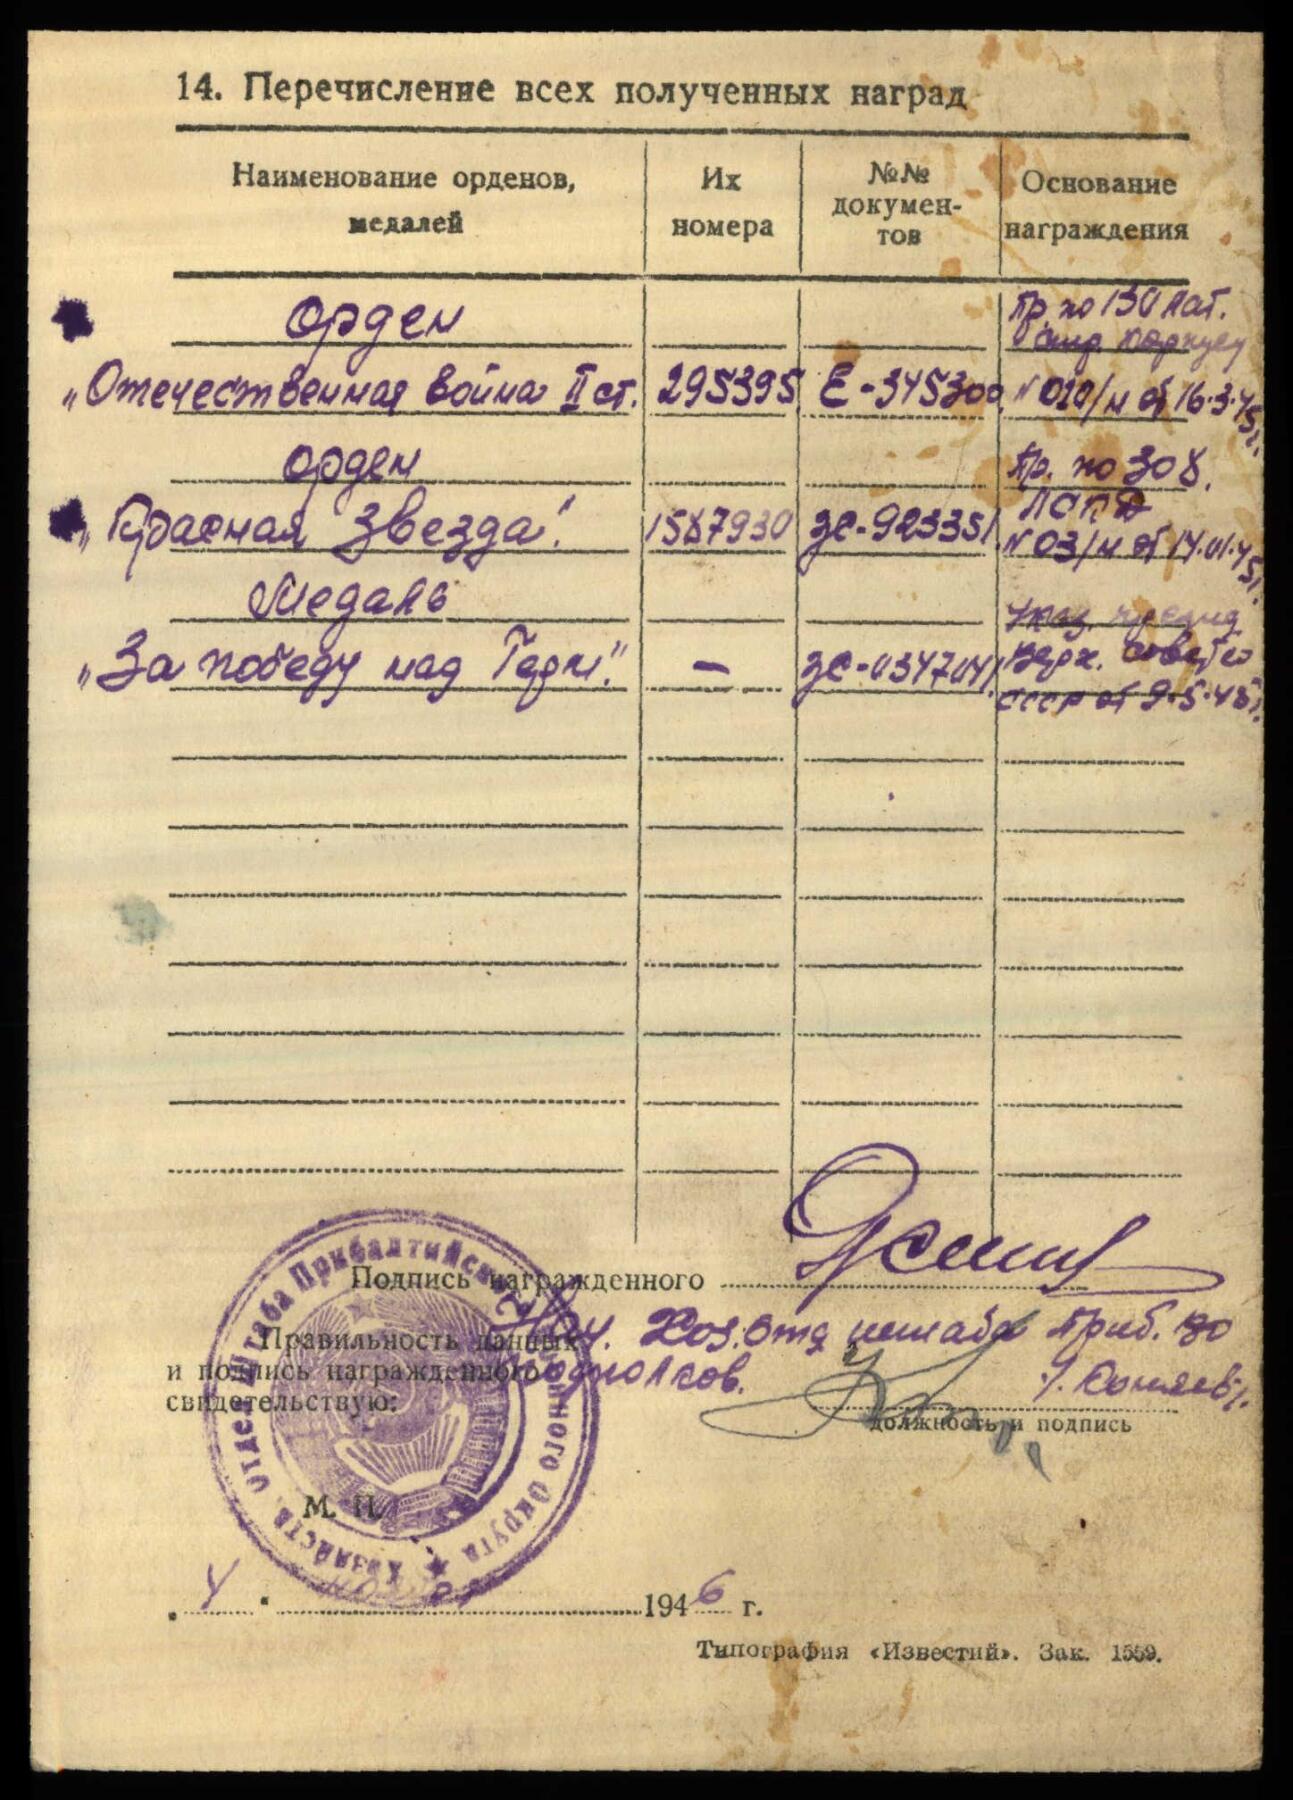 14. Перечисление всех полученных наград
Наименование орденов, медалей
Их номера
№№ документов
Основание награждения
Орден
Пр. по 130 лат.
стр. корпусу
„Отечественная война II ст.
295395
Е-345300
№ 020/н от 16.3.45г.
Орден
Пр. по 308.
ЛСКД
„Красная Звезда"
1587930
ЗС-923351
№ 03/н от 14.01.45г.
Медаль
Указ. презид.
„За победу над Герм."
—
ЗС-0347041
Верх. Совета
СССР от 9.5.45г.
Подпись награжденного
Правильность данных
Нач. Хоз. отд. штаба Приб. ВО
и подпись награжденного
подполков.
свидетельствую:
должность и подпись
М. П.
Хозяйств. отдел Штаба Прибалтийского Военного Округа
„4" 1946 г.
Типография «Известий». Зак. 1559.